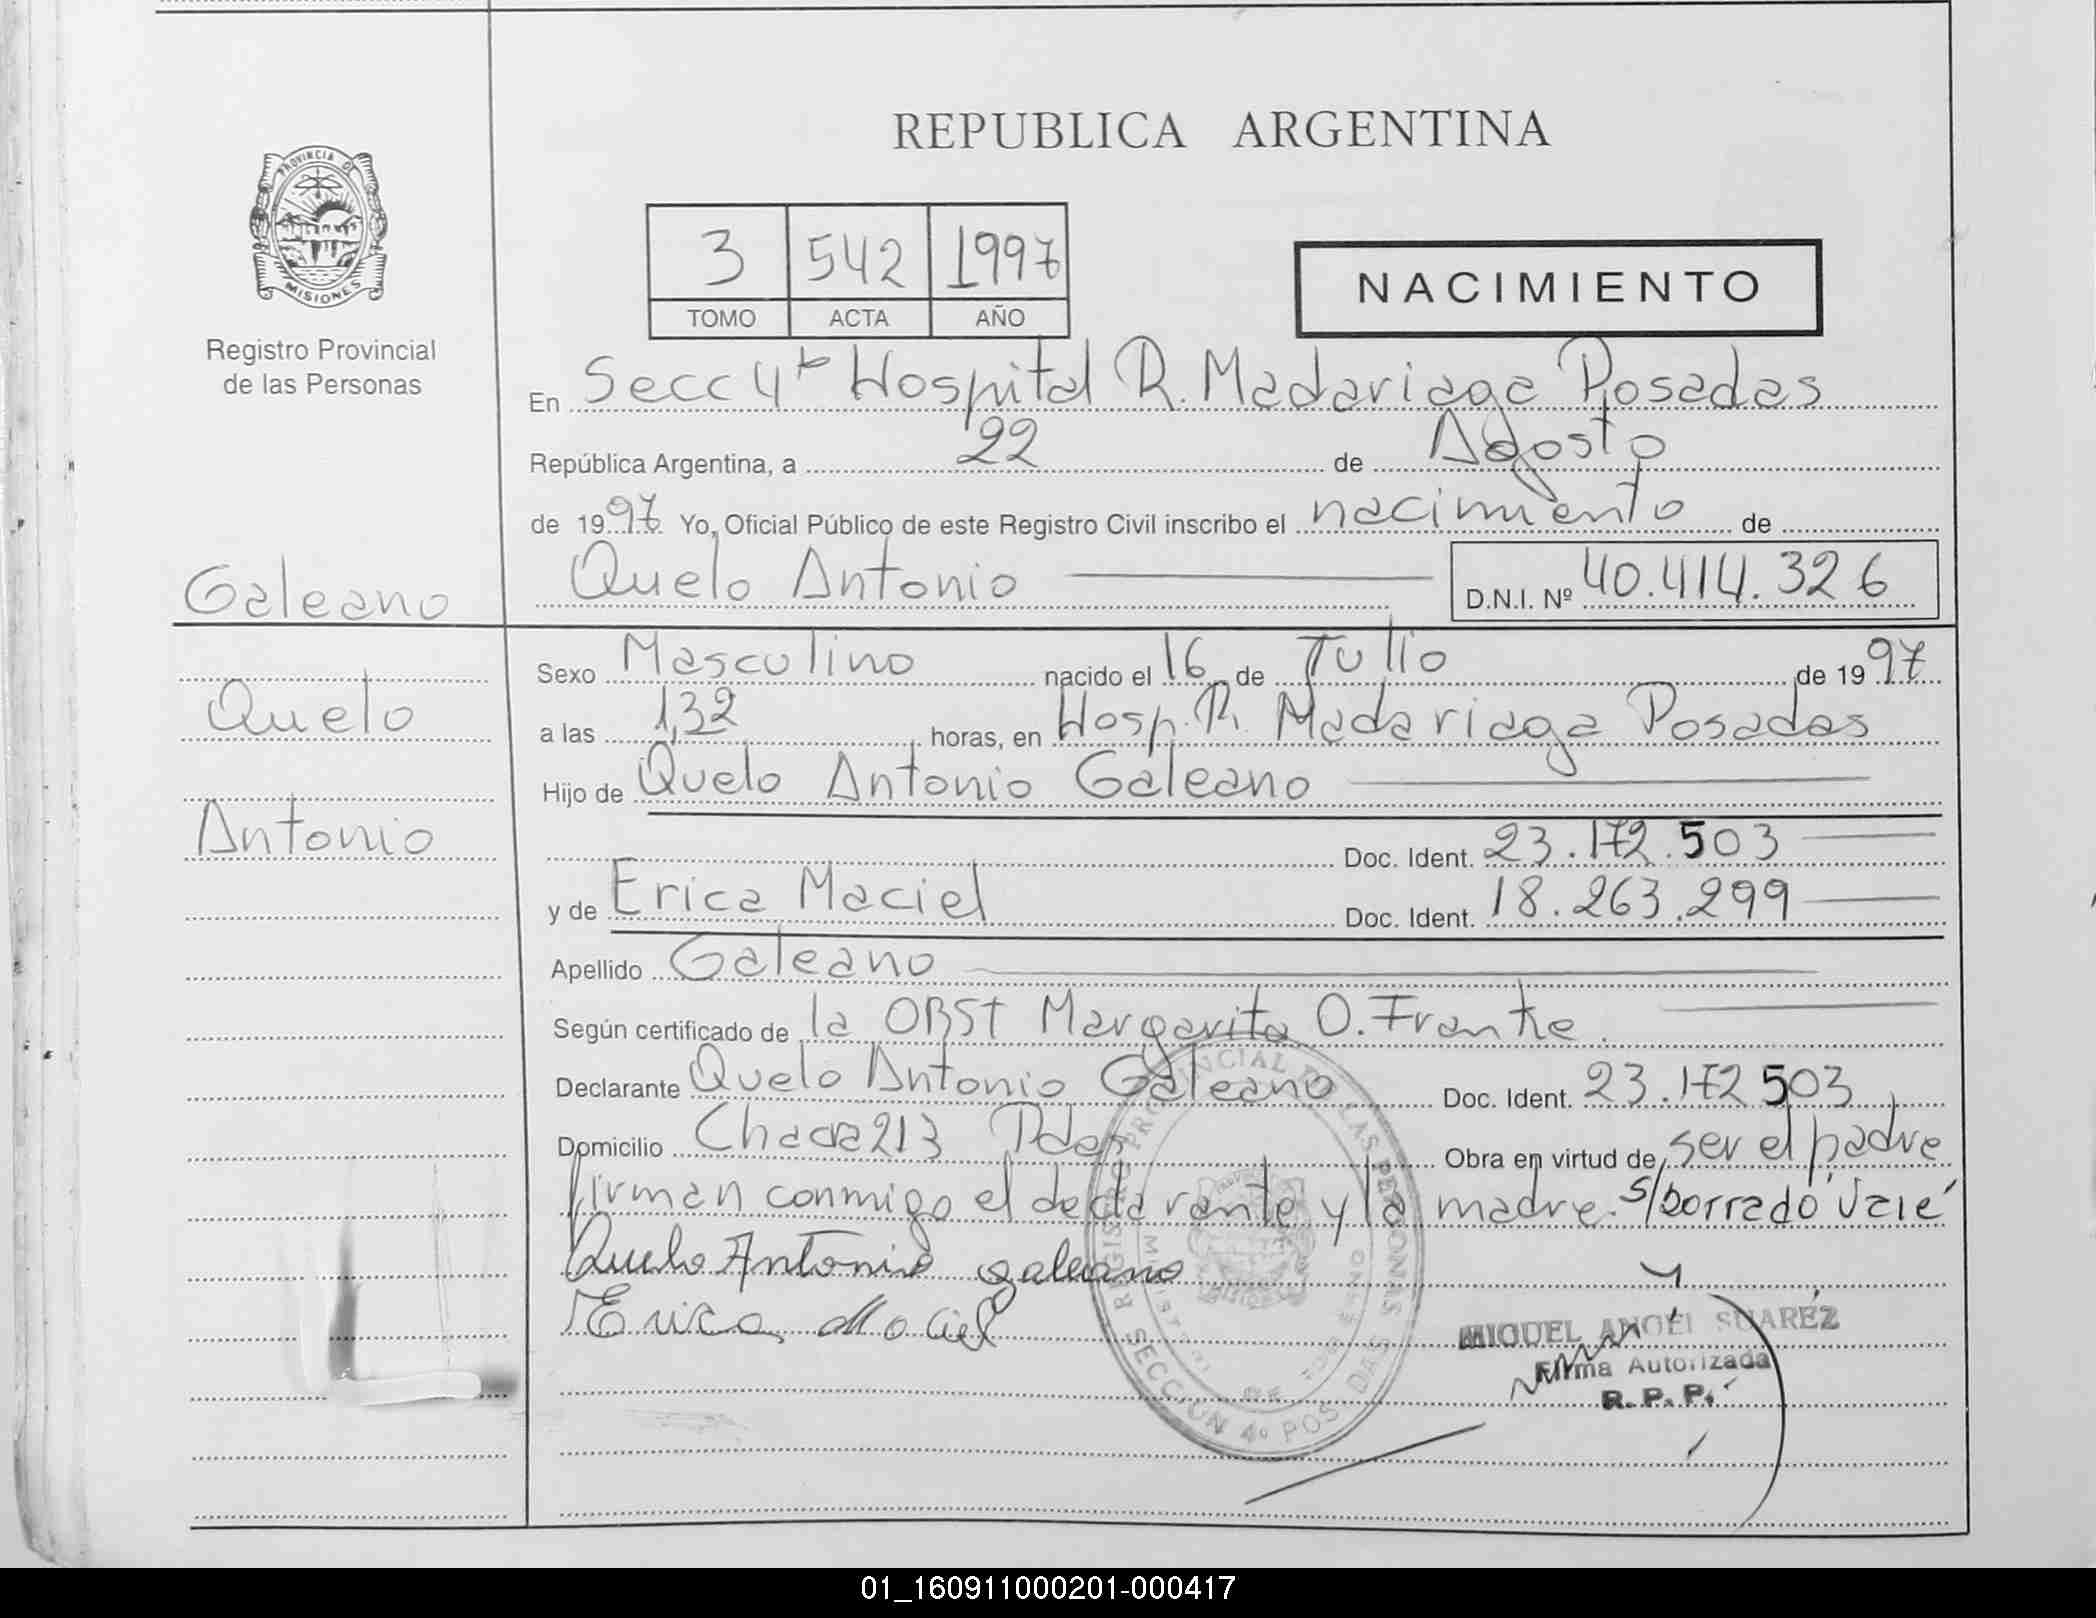 REPUBLICA ARGENTINA
PROVINCIA DE
MISIONES
Registro Provincial
de las Personas
3 542 1997
TOMO ACTA AÑO
NACIMIENTO
En Secc 4ta Hospital R. Madariaga Posadas
República Argentina, a 22 de Agosto
de 1997 Yo, Oficial Público de este Registro Civil inscribo el nacimiento de
Quelo Antonio D.N.I. Nº 40.414.326
Galeano
Quelo
Antonio
Sexo Masculino nacido el 16 de Julio de 1997
a las 1,32 horas, en Hosp. R. Madariaga Posadas
Hijo de Quelo Antonio Galeano
Doc. Ident. 23.172.503
y de Erica Maciel Doc. Ident. 18.263.299
Apellido Galeano
Según certificado de la OBST Margarita O. Franke
Declarante Quelo Antonio Galeano Doc. Ident. 23.172503
Domicilio Chacra 213 Pdas Obra en virtud de ser el padre
firman conmigo el declarante y la madre. S/borrado vale
Quelo Antonio galeano
Erica Maciel
REGISTRO PROVINCIAL DE LAS PERSONAS
MINISTERIO DE GOBIERNO
SECCION 4º POSADAS
MIGUEL ANGEL SUAREZ
Firma Autorizada
R. P. P.
01_160911000201-000417